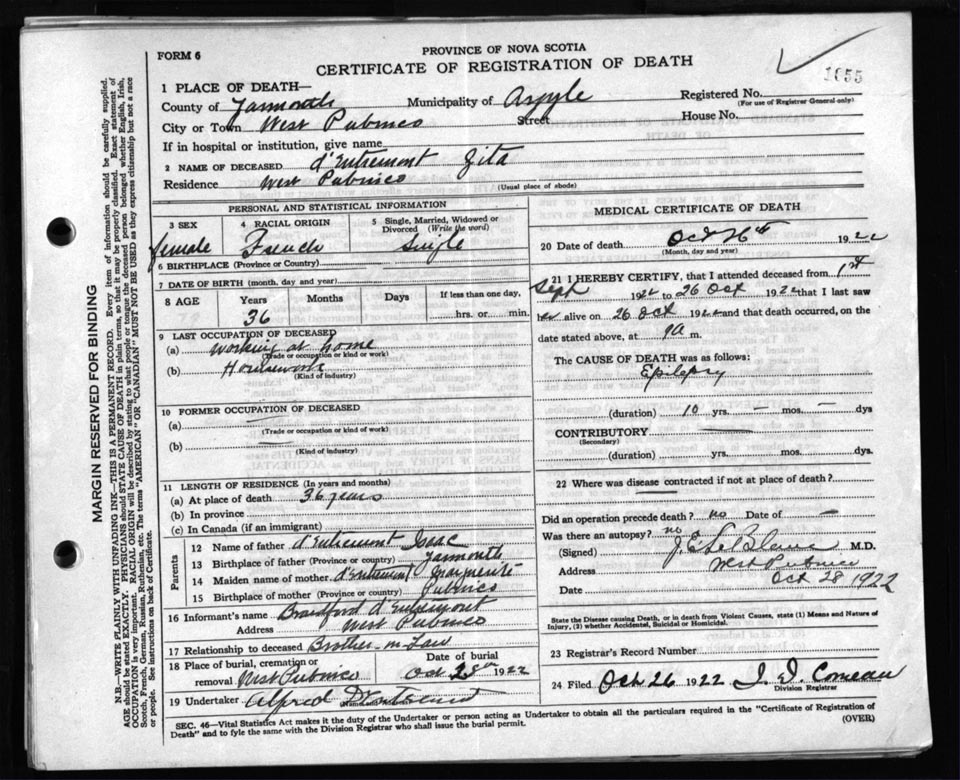 FORM 6
PROVINCE OF NOVA SCOTIA
CERTIFICATE OF REGISTRATION OF DEATH
1055
1 PLACE OF DEATH—
County of Yarmouth Municipality of Argyle Registered No.
(For use of Registrar General only)
City or Town West Pubnico Street House No.
If in hospital or institution, give name
2 NAME OF DECEASED d'Entremont Zita
Residence West Pubnico (Usual place of abode)
PERSONAL AND STATISTICAL INFORMATION
3 SEX 4 RACIAL ORIGIN 5 Single, Married, Widowed or Divorced (Write the word)
female French Single
6 BIRTHPLACE (Province or Country)
7 DATE OF BIRTH (month, day and year)
8 AGE Years Months Days If less than one day,
36 hrs. or min.
9 LAST OCCUPATION OF DECEASED
(a) Working at home
(Trade or occupation or kind or work)
(b) Housework
(Kind of industry)
10 FORMER OCCUPATION OF DECEASED
(a) —
(Trade or occupation or kind of work)
(b) —
(Kind of industry)
11 LENGTH OF RESIDENCE (In years and months)
(a) At place of death 36 years
(b) In province
(c) In Canada (if an immigrant)
Parents
12 Name of father d'Entremont Isaac
13 Birthplace of father (Province or country) Yarmouth
14 Maiden name of mother d'Entremont Marguerite
15 Birthplace of mother (Province or country) Pubnico
16 Informant's name Bradford d'Entremont
Address West Pubnico
17 Relationship to deceased Brother-in-Law
18 Place of burial, cremation or removal West Pubnico Date of burial Oct 28th 1922
19 Undertaker Alfred D'entremont
MEDICAL CERTIFICATE OF DEATH
20 Date of death Oct 26th 1922
(Month, day and year)
21 I HEREBY CERTIFY, that I attended deceased from 1st
Sept 1922 to 26 Oct 1922 that I last saw
her alive on 26 Oct 1922 and that death occurred, on
date stated above, at 9 a m.
The CAUSE OF DEATH was as follows:
Epilepsy
(duration) 10 yrs. — mos. — dys
CONTRIBUTORY —
(Secondary)
(duration) yrs. mos. dys.
22 Where was disease contracted if not at place of death?
—
Did an operation precede death? no Date of —
Was there an autopsy? no
(Signed) J. E. LeBlanc M.D.
Address West Pubnico
Date Oct 28 1922
State the Disease causing Death, or in death from Violent Causes, state (1) Means and Nature of
Injury, (2) whether Accidental, Suicidal or Homicidal.
23 Registrar's Record Number
24 Filed Oct 26 1922 Comeau
Division Registrar
SEC. 46—Vital Statistics Act makes it the duty of the Undertaker or person acting as Undertaker to obtain all the particulars required in the "Certificate of Registration of
Death" and to fyle the same with the Division Registrar who shall issue the burial permit. (OVER)
MARGIN RESERVED FOR BINDING
N.B.—WRITE PLAINLY WITH UNFADING INK—THIS IS A PERMANENT RECORD. Every item of information should be carefully supplied.
AGE should be stated EXACTLY. PHYSICIANS should STATE CAUSE OF DEATH in plain terms, so that it may be properly classified. Exact statement of
OCCUPATION is very important. RACIAL ORIGIN will be described by stating to what people or tongue the deceased person belonged whether English, Irish,
Scotch, French, German, Russian, Ruthenian, etc. The terms "AMERICAN" OR "CANADIAN" MUST NOT BE USED as they express citizenship but not a race
or people. See instructions on back of Certificate.